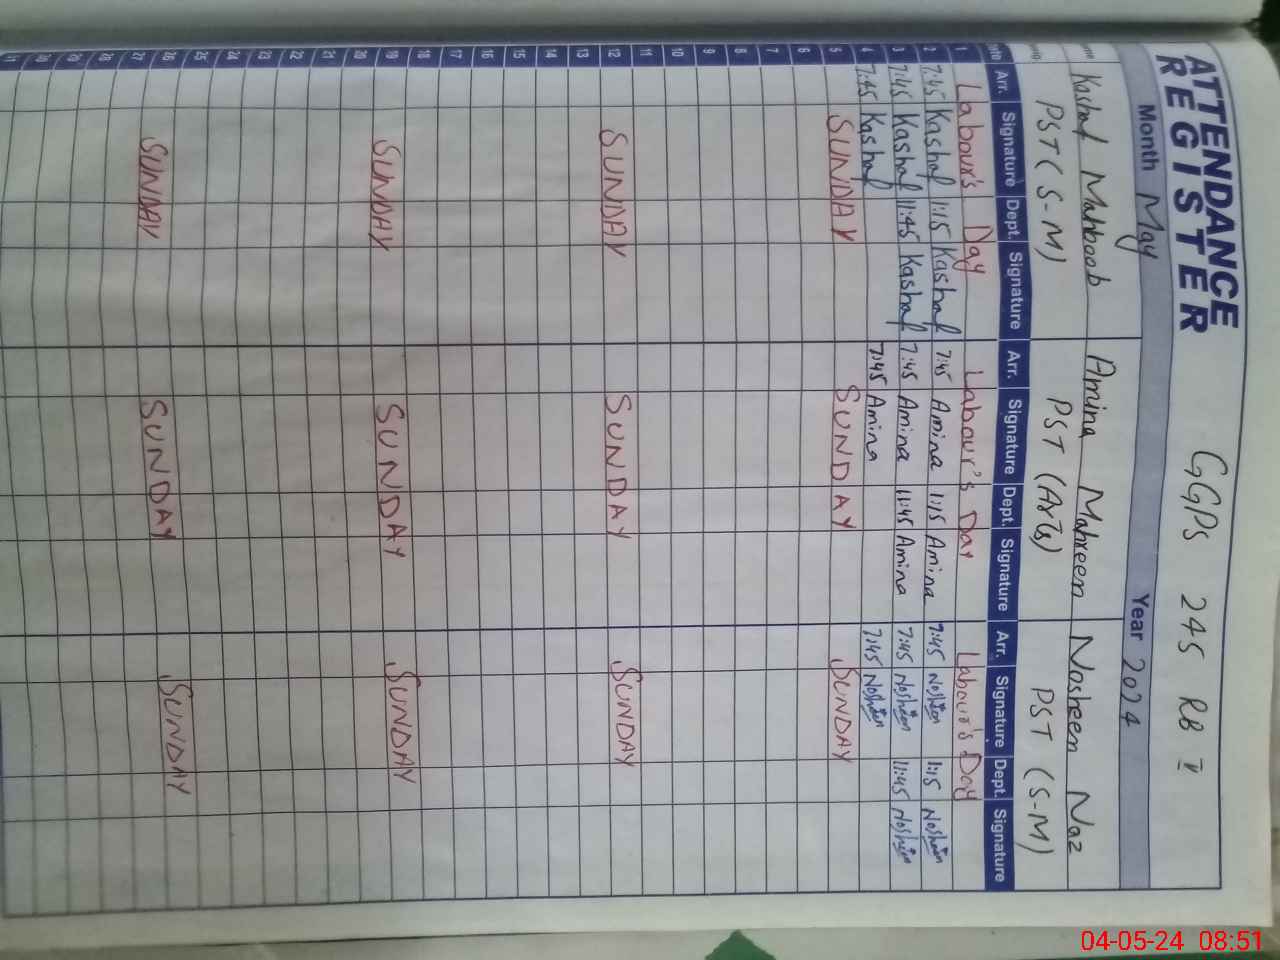 ATTENDANCE REGISTER
GGPS 245 RB V
Month May Year 2024
Kashaf Mahboob Amina Mahreen Nosheen Naz
PST (S-M) PST (Arts) PST (S-M)
Arr. Signature Dept. Signature Arr. Signature Dept. Signature Arr. Signature Dept. Signature
1 Labour's Day Labour's Day Labour's Day
2 7:45 Kashaf 1:15 Kashaf 7:45 Amina 1:15 Amina 7:45 Nosheen 1:15 Nosheen
3 7:45 Kashaf 11:45 Kashaf 7:45 Amina 11:45 Amina 7:45 Nosheen 11:45 Nosheen
4 7:45 Kashaf 7:45 Amina 7:45 Nosheen
5 SUNDAY SUNDAY SUNDAY
6
7
8
9
10
11
12 SUNDAY SUNDAY SUNDAY
13
14
15
16
17
18
19 SUNDAY SUNDAY SUNDAY
20
21
22
23
24
25
26 SUNDAY SUNDAY SUNDAY
27
28
29
30
31
04-05-24 08:51